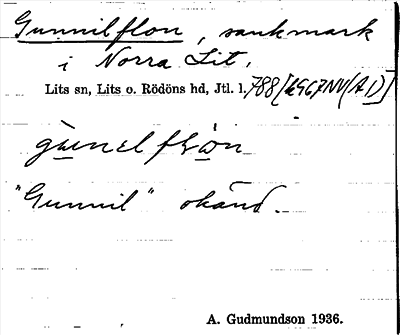 Gunnilflon, sankmark
i Norra Lit.
Lits sn, Lits o. Rödöns hd, Jtl. l. 788
gunelflon
"Gunnil" okänd.
A. Gudmundson 1936.